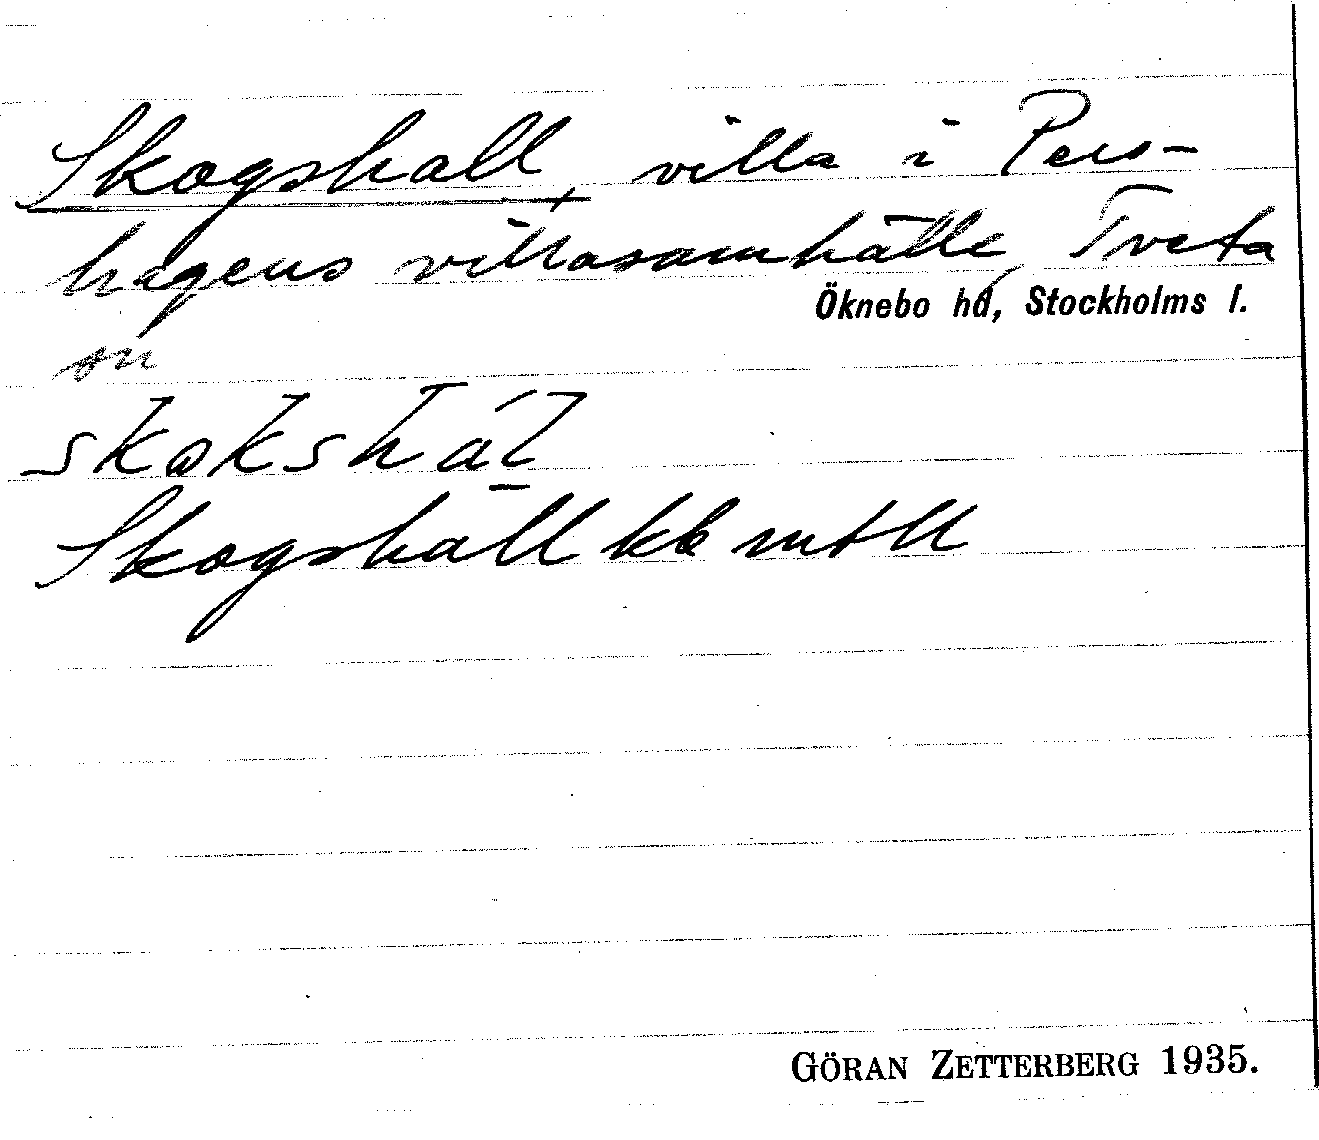 Skogshall, villa i Pers-
hagens villasamhälle, Tveta
Öknebo hd, Stockholms l.
sn
skokshál
Skogshall kb mtll
GÖRAN ZETTERBERG 1935.